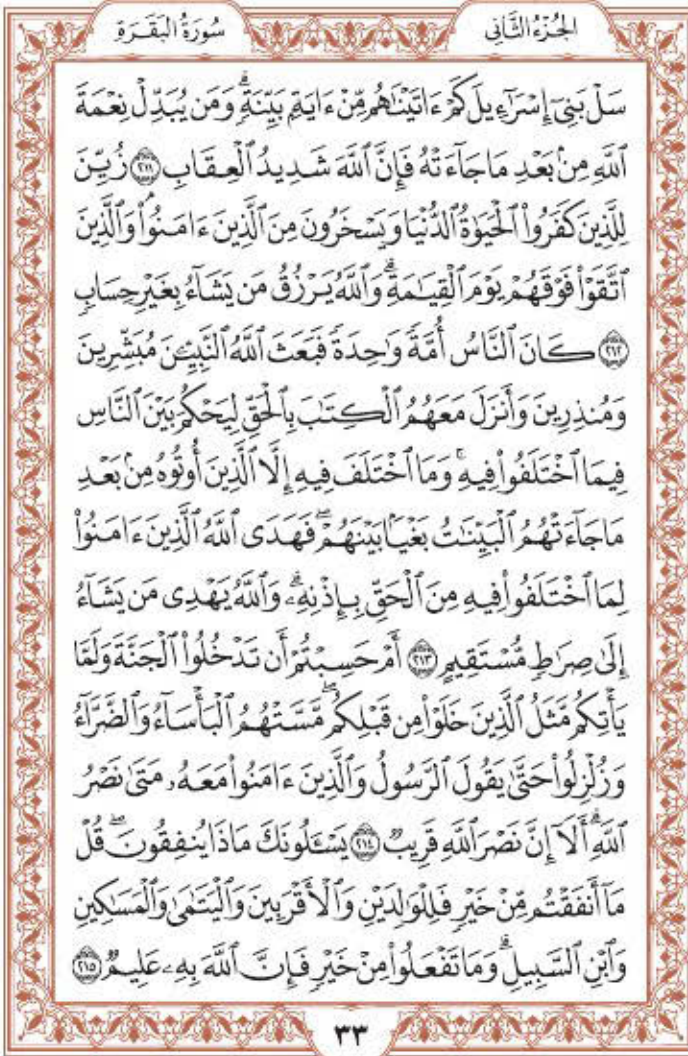 الجُزْءُ الثَّانِي سُورَةُ البَقَرَةِ
سَلْ بَنِىٓ إِسْرَٰٓءِيلَ كَمْ ءَاتَيْنَٰهُم مِّنْ ءَايَةٍۭ بَيِّنَةٍۗ وَمَن يُبَدِّلْ نِعْمَةَ
ٱللَّهِ مِنۢ بَعْدِ مَا جَآءَتْهُ فَإِنَّ ٱللَّهَ شَدِيدُ ٱلْعِقَابِ ٢١١ زُيِّنَ
لِلَّذِينَ كَفَرُوا۟ ٱلْحَيَوٰةُ ٱلدُّنْيَا وَيَسْخَرُونَ مِنَ ٱلَّذِينَ ءَامَنُوا۟ۘ وَٱلَّذِينَ
ٱتَّقَوْا۟ فَوْقَهُمْ يَوْمَ ٱلْقِيَٰمَةِۗ وَٱللَّهُ يَرْزُقُ مَن يَشَآءُ بِغَيْرِ حِسَابٍ
٢١٢ كَانَ ٱلنَّاسُ أُمَّةً وَٰحِدَةً فَبَعَثَ ٱللَّهُ ٱلنَّبِيِّـۧنَ مُبَشِّرِينَ
وَمُنذِرِينَ وَأَنزَلَ مَعَهُمُ ٱلْكِتَٰبَ بِٱلْحَقِّ لِيَحْكُمَ بَيْنَ ٱلنَّاسِ
فِيمَا ٱخْتَلَفُوا۟ فِيهِۚ وَمَا ٱخْتَلَفَ فِيهِ إِلَّا ٱلَّذِينَ أُوتُوهُ مِنۢ بَعْدِ
مَا جَآءَتْهُمُ ٱلْبَيِّنَٰتُ بَغْيًۢا بَيْنَهُمْۖ فَهَدَى ٱللَّهُ ٱلَّذِينَ ءَامَنُوا۟
لِمَا ٱخْتَلَفُوا۟ فِيهِ مِنَ ٱلْحَقِّ بِإِذْنِهِۦۗ وَٱللَّهُ يَهْدِى مَن يَشَآءُ
إِلَىٰ صِرَٰطٍ مُّسْتَقِيمٍ ٢١٣ أَمْ حَسِبْتُمْ أَن تَدْخُلُوا۟ ٱلْجَنَّةَ وَلَمَّا
يَأْتِكُم مَّثَلُ ٱلَّذِينَ خَلَوْا۟ مِن قَبْلِكُمۖ مَّسَّتْهُمُ ٱلْبَأْسَآءُ وَٱلضَّرَّآءُ
وَزُلْزِلُوا۟ حَتَّىٰ يَقُولَ ٱلرَّسُولُ وَٱلَّذِينَ ءَامَنُوا۟ مَعَهُۥ مَتَىٰ نَصْرُ
ٱللَّهِۗ أَلَآ إِنَّ نَصْرَ ٱللَّهِ قَرِيبٌ ٢١٤ يَسْـَٔلُونَكَ مَاذَا يُنفِقُونَۖ قُلْ
مَآ أَنفَقْتُم مِّنْ خَيْرٍ فَلِلْوَٰلِدَيْنِ وَٱلْأَقْرَبِينَ وَٱلْيَتَٰمَىٰ وَٱلْمَسَٰكِينِ
وَٱبْنِ ٱلسَّبِيلِۗ وَمَا تَفْعَلُوا۟ مِنْ خَيْرٍ فَإِنَّ ٱللَّهَ بِهِۦ عَلِيمٌ ٢١٥
٣٣